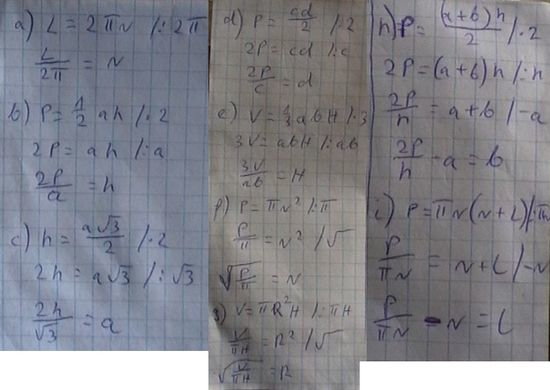 a) L = 2πr /:2π
L/2π = r
b) P = 1/2 ah /·2
2P = ah /:a
2P/a = h
c) h = a√3/2 /·2
2h = a√3 /:√3
2h/√3 = a
d) P = cd/2 /·2
2P = cd /:c
2P/c = d
e) V = 1/3 abH /·3
3V = abH /:ab
3V/ab = H
f) P = πr² /:π
P/π = r² /√
√(P/π) = r
g) V = πR²H /:πH
V/πH = R² /√
√(V/πH) = R
h) P = (a+b)h/2 /·2
2P = (a+b)h /:h
2P/h = a+b /-a
2P/h - a = b
i) P = πr(r+L) /:πr
P/πr = r+L /-r
P/πr - r = L